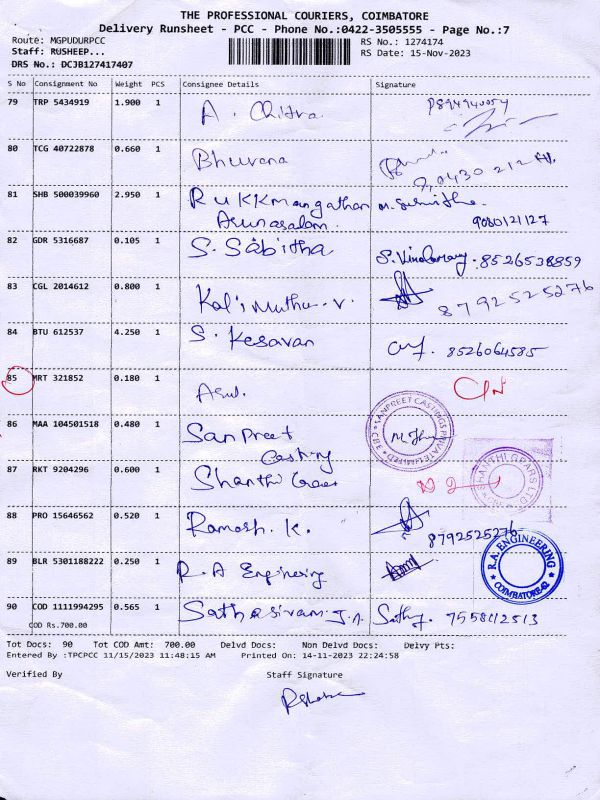 THE PROFESSIONAL COURIERS, COIMBATORE
Delivery Runsheet - PCC - Phone No.:0422-3505555 - Page No.:7
Route: MGPUDURPCC
RS No.: 1274174
Staff: RUSHEEP...
RS Date: 15-Nov-2023
DRS No.: DCJB127417407
S No Consignment No Weight PCS Consignee Details Signature
79 TRP 5434919 1.900 1 A. Chitra
80 TCG 40722878 0.660 1 Bhuvana
81 SHB 500039960 2.950 1 RUKKMangathan
Arunasalam.
9080121127
82 GDR 5316687 0.105 1 S. Sabitha 8526538859
83 CGL 2014612 0.800 1 Kalimuthu. v. 8792525276
84 BTU 612537 4.250 1 S. Kesavan 8526064585
85 MRT 321852 0.180 1 Arul.
86 MAA 104501518 0.480 1 Sanpreet
Casting
SANPREET CASTINGS PRIVATE LIMITED
87 RKT 9204296 0.600 1 Shanthi Gears
SHANTHI GEARS LTD
88 PRO 15646562 0.520 1 Ramesh. K. 8792525276
89 BLR 5301188222 0.250 1 R. A Engineering
R.A. ENGINEERING
COIMBATORE-42
90 COD 1111994295 0.565 1 Sathasivam.J.A. 7558112513
COD Rs.700.00
Tot Docs: 90 Tot COD Amt: 700.00 Delvd Docs: Non Delvd Docs: Delvy Pts:
Entered By :TPCPCC 11/15/2023 11:48:15 AM Printed On: 14-11-2023 22:24:58
Verified By Staff Signature